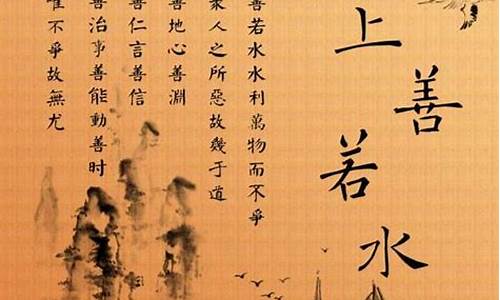 上善若水
善若水水利萬物而不爭
衆人之所惡故幾于道
善地心善淵
善仁言善信
善治事善能動善时
惟不爭故無尤